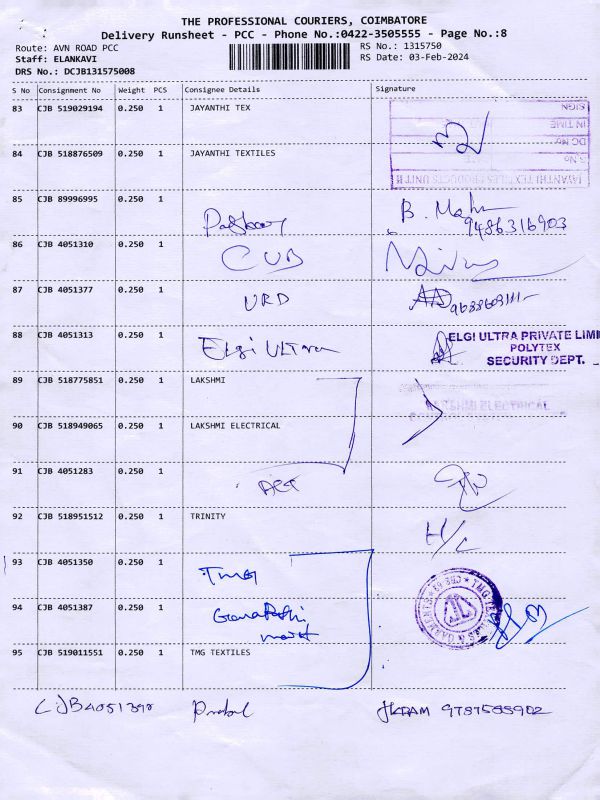 THE PROFESSIONAL COURIERS, COIMBATORE
Delivery Runsheet - PCC - Phone No.:0422-3505555 - Page No.:8
Route: AVN ROAD PCC RS No.: 1315750
Staff: ELANKAVI RS Date: 03-Feb-2024
DRS No.: DCJB131575008
S No Consignment No Weight PCS Consignee Details Signature
83 CJB 519029194 0.250 1 JAYANTHI TEX
SIGN
IN TIME
DC No
S.No
JAYANTHI TEX PRODUCTS UNIT II
84 CJB 518876509 0.250 1 JAYANTHI TEXTILES
85 CJB 89996995 0.250 1 B. 9486316903
86 CJB 4051310 0.250 1 CUB
87 CJB 4051377 0.250 1 URD
88 CJB 4051313 0.250 1 Elgi ULTra
ELGI ULTRA PRIVATE LIMI
POLYTEX
SECURITY DEPT.
89 CJB 518775851 0.250 1 LAKSHMI
ELECTRICAL
90 CJB 518949065 0.250 1 LAKSHMI ELECTRICAL
91 CJB 4051283 0.250 1
92 CJB 518951512 0.250 1 TRINITY H/C
93 CJB 4051350 0.250 1 TMG
94 CJB 4051387 0.250 1
95 CJB 519011551 0.250 1 TMG TEXTILES
CJB4051390